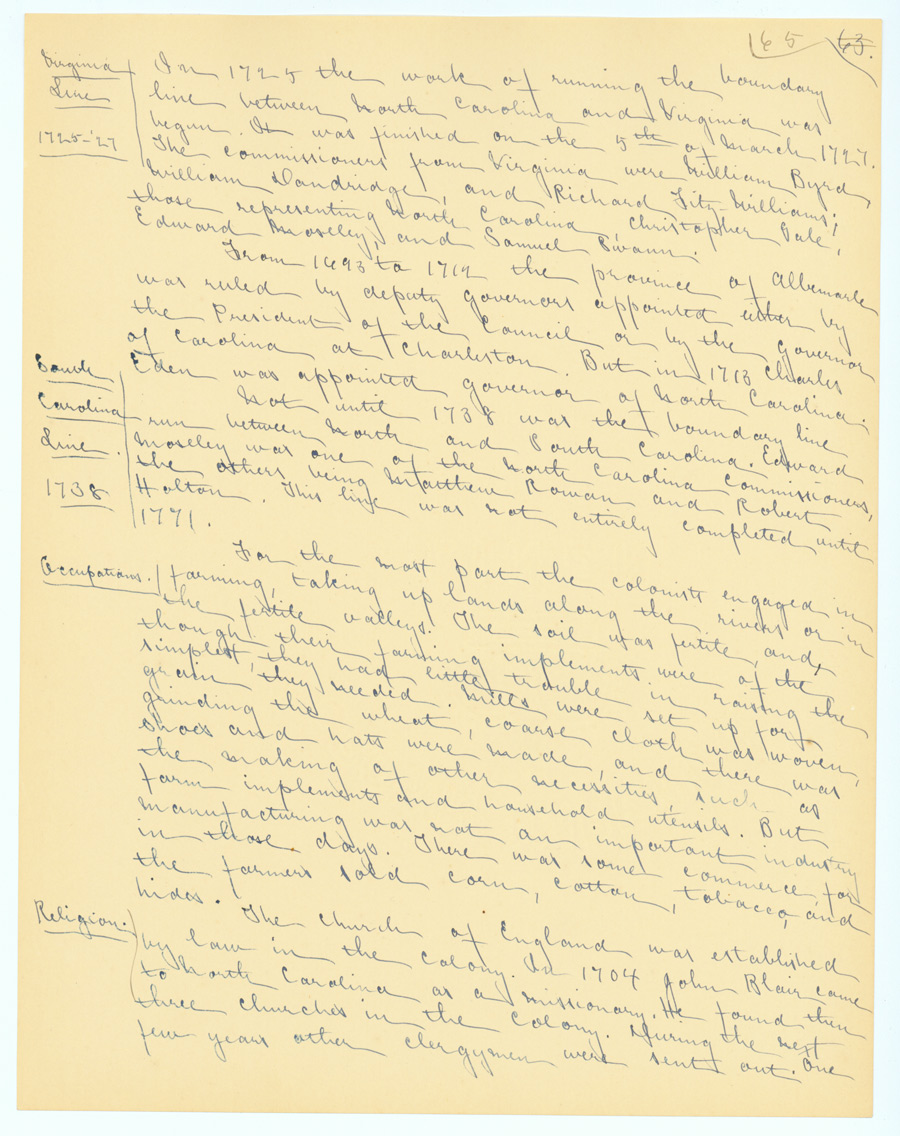 65 63.
Virginia
Line
1725-'27
In 1725 the work of running the boundary
line between North Carolina and Virginia was
begun. It was finished on the 5th of March 1727.
The commissioners from Virginia were William Byrd,
William Dandridge, and Richard Fitz-Williams;
those representing North Carolina, Christopher Gale,
Edward Moseley, and Samuel Swann.
From 1693 to 1712 the province of Albemarle
was ruled by deputy governors appointed either by
the President of the Council or by the governor
of Carolina at Charleston. But in 1713 Charles
Eden was appointed governor of North Carolina.
South
Carolina
Line.
1738
Not until 1738 was the boundary line
run between North and South Carolina. Edward
Moseley was one of the North Carolina Commissioners,
the others being Matthew Rowan and Robert
Halton. This line was not entirely completed until
1771.
Occupations.
For the most part the colonists engaged in
farming, taking up lands along the rivers or in
the fertile valleys. The soil was fertile, and,
though their farming implements were of the
simplest, they had little trouble in raising the
grain they needed. Mills were set up for
grinding the wheat, coarse cloth was woven,
shoes and hats were made, and there was
the making of other necessities, such as
farm implements and household utensils. But
manufacturing was not an important industry
in those days. There was some commerce, for
the farmers sold corn, cotton, tobacco, and
hides.
Religion.
The Church of England was established
by law in the colony. In 1704 John Blair came
to North Carolina as a missionary. He found then
three churches in the colony. During the next
few years other clergymen were sent out. One